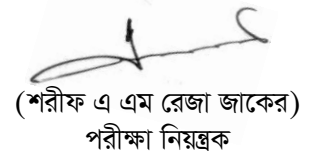 (শরীফ এ এম রেজা জাকের)
পরীক্ষা নিয়ন্ত্রক